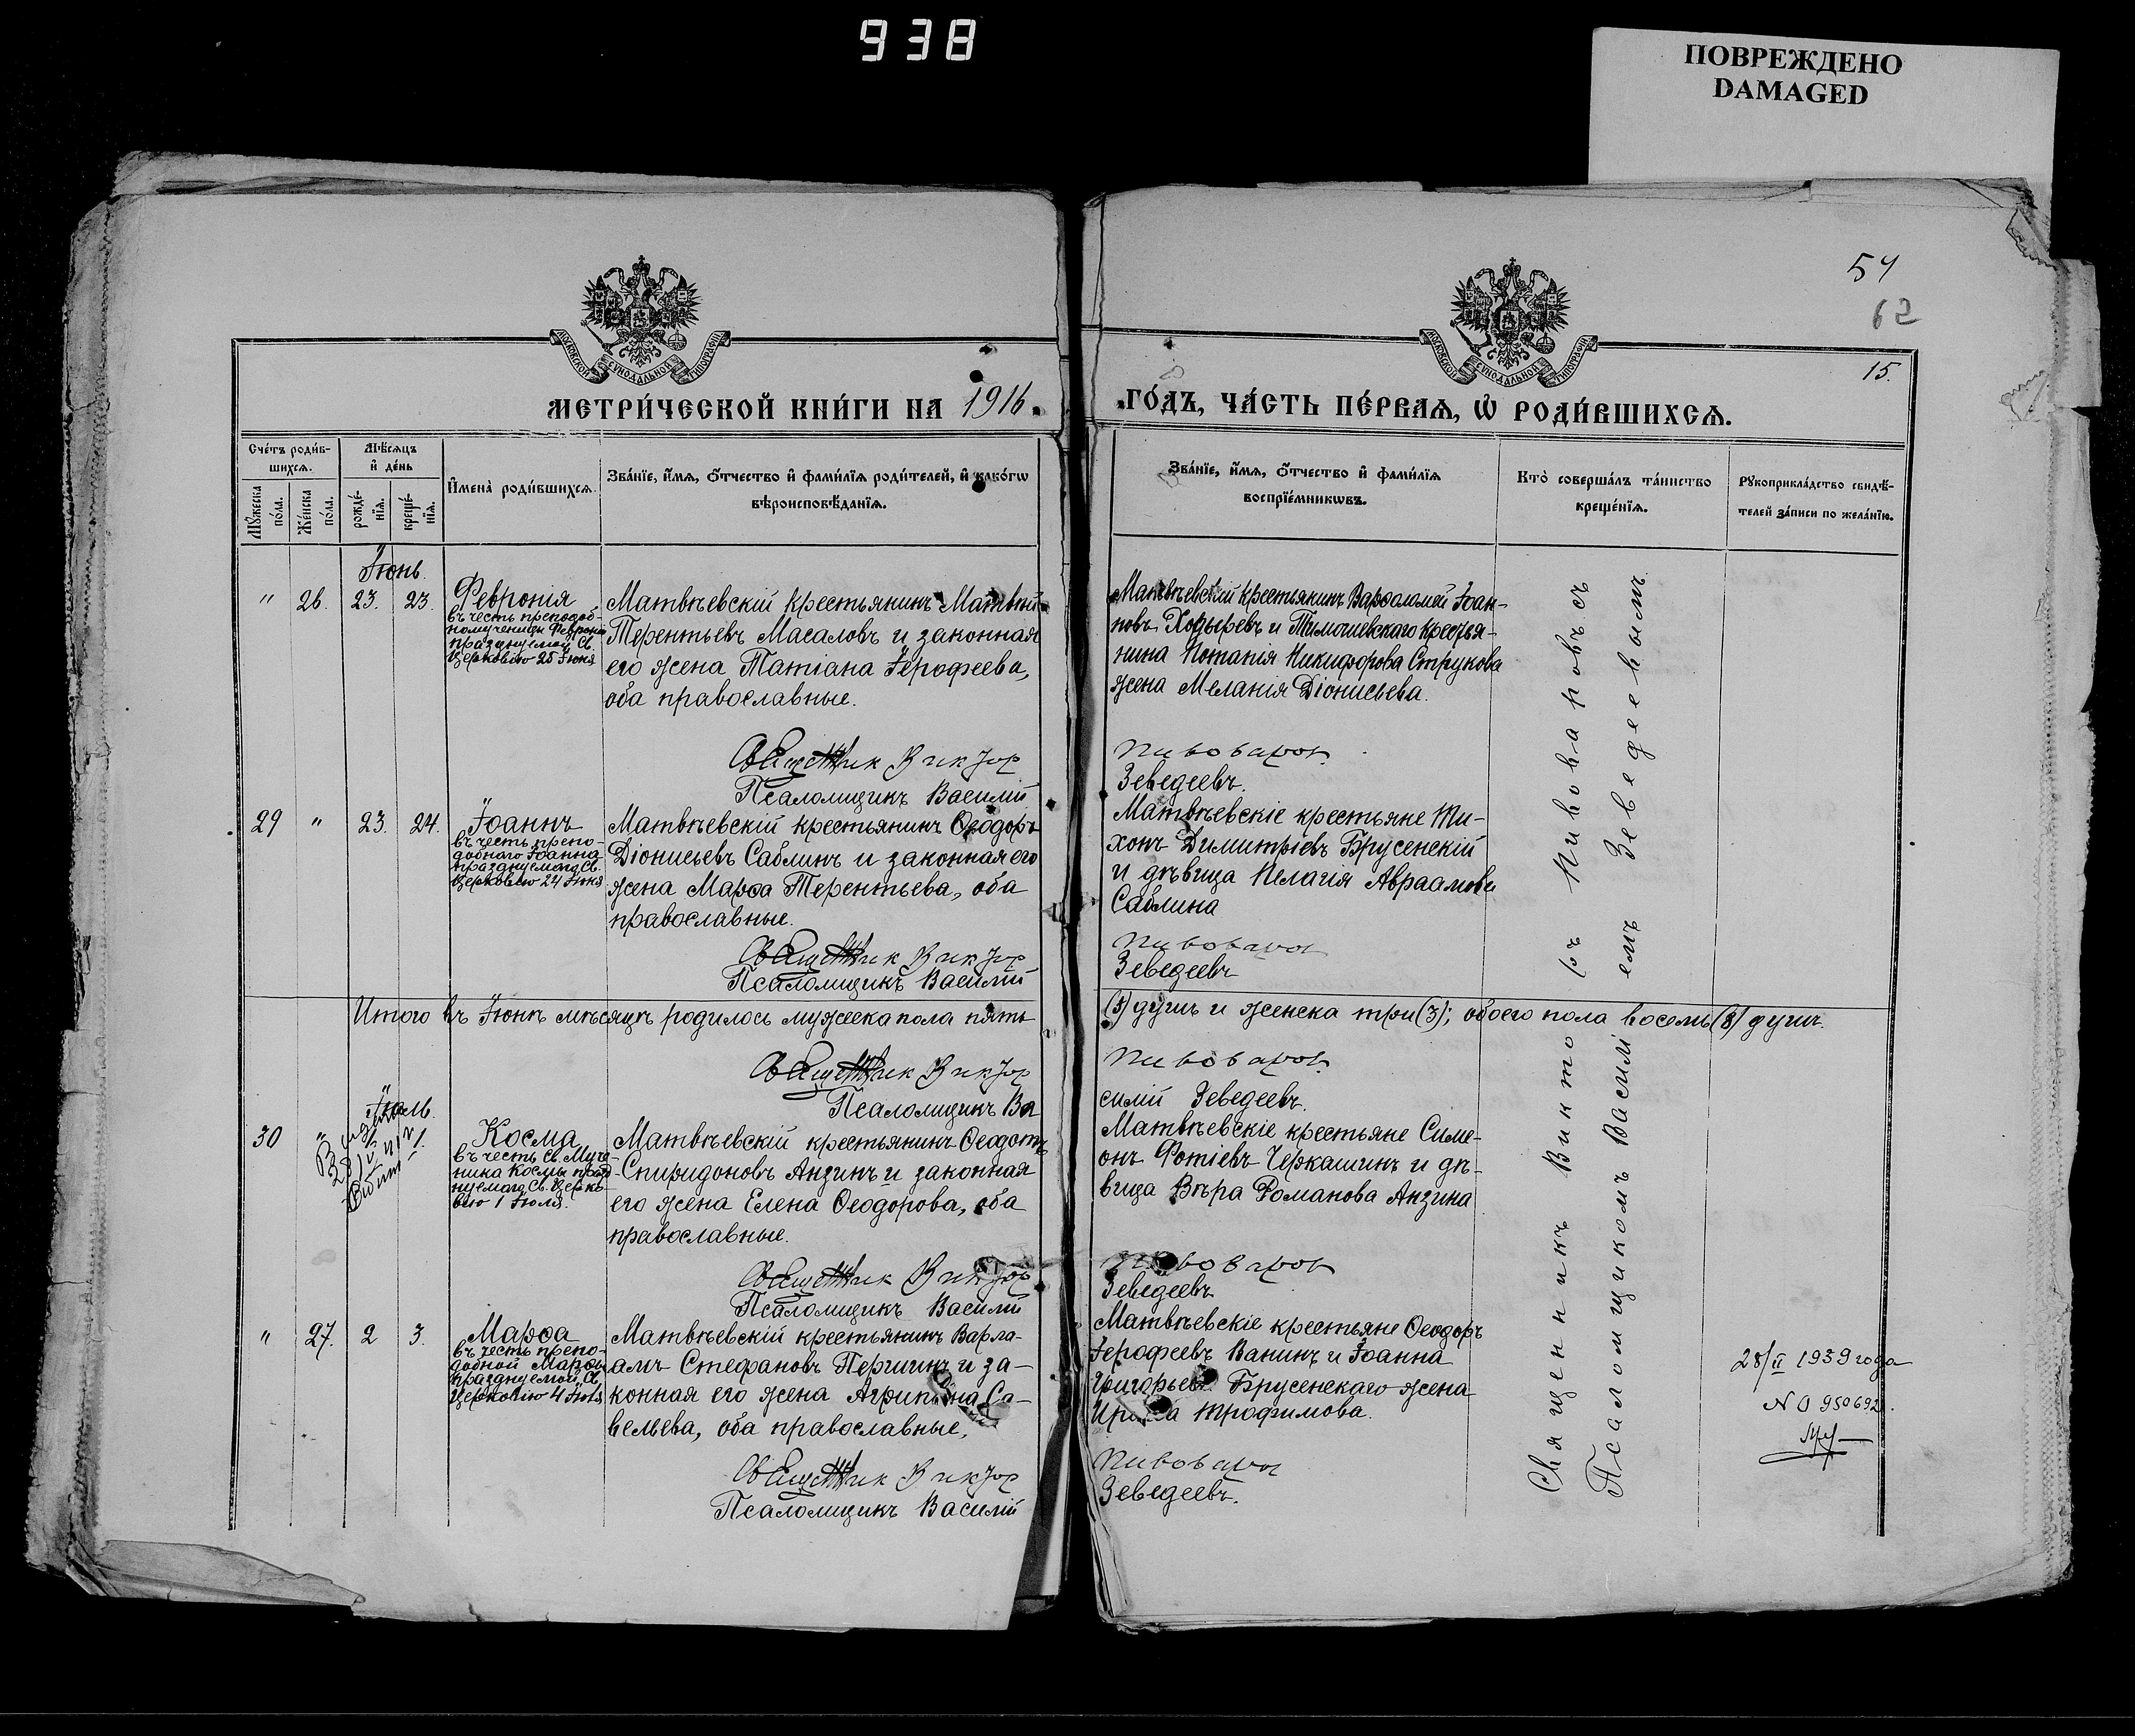 938
ПОВРЕЖДЕНО
DAMAGED
54
62
15.
МОСКОВСКОЙ СѴНОДАЛЬНОЙ ТИПОГРАФІИ
МОСКОВСКОЙ СѴНОДАЛЬНОЙ ТИПОГРАФІИ
МЕТРИ́ЧЕСКОЙ КНИ́ГИ НА 1916.
ГО́ДЪ, ЧА́СТЬ ПЕ́РВАѦ, Ѡ҆ РОДИ́ВШИХСѦ.
Сче́тъ роди́в-
шихсѧ.
Мꙋ́жеска
по́ла.
Же́нска
по́ла.
Мѣ́сѧцъ
и҆ де́нь
рожде́-
нїѧ.
креще́-
нїѧ.
И҆мена̀ роди́вшихсѧ.
Зва́нїе, и҆́мѧ, ѻ҆́тчество и҆ фами́лїѧ роди́телей, и҆ како́гѡ
вѣроисповѣ́данїѧ.
Зва́нїе, и҆́мѧ, ѻ҆́тчество и҆ фами́лїѧ
воспрїе́мникѡвъ.
Кто̀ соверша́лъ та́инство
креще́нїѧ.
Рꙋкоприкла́дство свидѣ́-
телей за́писи по жела́нїю.
Іюнь.
" 26. 23. 23.
Февронія
въ честь преподоб-
номученицы Февроніи
празднуемой Св.
Церковію 25 Іюня
Матвѣевскій крестьянинъ Матвѣй
Терентьевъ Масаловъ и законная
его жена Татіана Іерофеева,
оба православные.
Священник Виктор
Псаломщикъ Василій
Матвѣевскій крестьянинъ Варѳоломей Іоан-
новъ Хопыревъ и Тимошевскаго крестья-
нина Потапія Никифорова Струкова
жена Меланія Діонисьева.
Пивоваров
Зеведеевъ.
29 " 23. 24.
Іоаннъ
въ честь препо-
добнаго Іоанна
празднуемаго Св.
Церковію 24 Іюня
Матвѣевскій крестьянинъ Ѳеодоръ
Діонисьевъ Саблинъ и законная его
жена Марѳа Терентьева, оба
православные.
Священник Виктор
Псаломщикъ Василій
Матвѣевскіе крестьяне Ти-
хонъ Димитріевъ Брусенскій
и дѣвица Пелагія Авраамова
Саблина
Пивоваров
Зеведеевъ
Итого въ Іюнѣ мѣсяцѣ родилось мужеска пола пять
(5) душъ и женска три (3); обоего пола восемь (8) душъ.
Священник Виктор
Псаломщикъ Ва
Пивоваров.
силій Зеведеевъ.
Іюль.
30 " 1.
Косма
въ честь Св. Муче-
ника Космы празд-
нуемаго Св. Церко-
вію 1 Іюля.
Матвѣевскій крестьянинъ Ѳеодотъ
Спиридоновъ Анзинъ и законная
его жена Елена Ѳеодорова, оба
православные.
Священник Виктор
Псаломщикъ Василій
Матвѣевскіе крестьяне Симе-
онъ Фотіевъ Черкашинъ и дѣ-
вица Вѣра Романова Анзина
Пивоваров
Зеведеевъ
" 27. 2 3.
Марѳа
въ честь препо-
добной Марѳы
празднуемой Св.
Церковію 4 Іюля
Матвѣевскій крестьянинъ Варла-
амъ Стефановъ Першинъ и за-
конная его жена Агрипина Са-
вельева, оба православные,
Священник Виктор
Псаломщикъ Василій
Матвѣевскіе крестьяне Ѳеодоръ
Іерофеевъ Ванинъ и Іоанна
Григорьева Брусенскаго жена
Ирина Трофимова.
Пивоваров
Зеведеевъ.
Священникъ Викторъ Пивоваровъ съ
Псаломщикомъ Василіемъ Зеведеевымъ
28/II 1939 года
NO 950692.